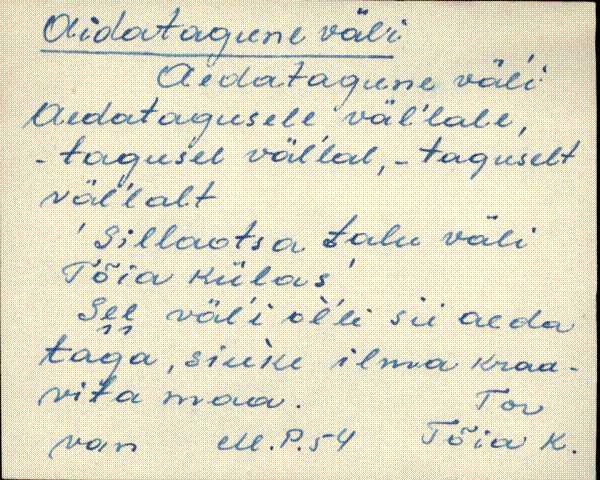 Aidatagune väl'i
Aedatagune väl'i
Aedatagusele väl'lale,
- tagusel väl'lal, - taguselt
väl'lalt
'Sillaotsa talu väli
Tõia külas'
See väl'i ol'li sii aeda
taga, siuke ilma kraa-
vita maa. Tor
van M.P.54 Tõia k.